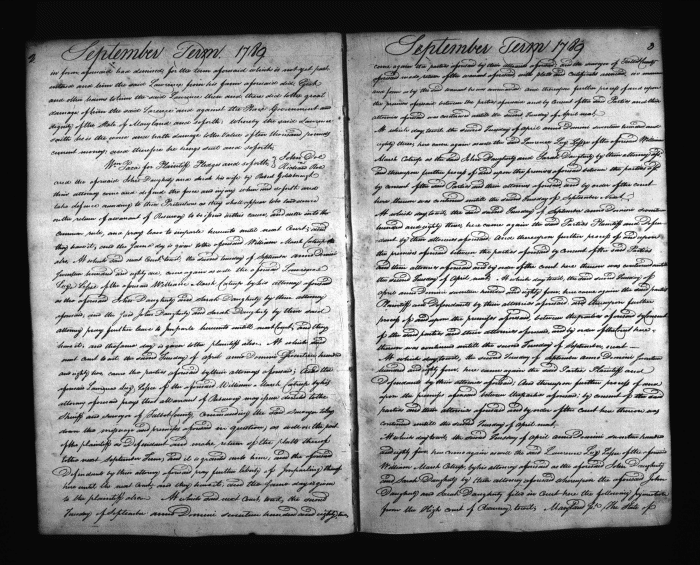 2
September Term 1789
in form aforesaid has demised for the term aforesaid which is not yet past
entered and him the said Laurence from his farm aforesaid did Eject
and other harms to him the said Laurence then and there did to the great
damage of him the said Laurence and against the Peace Government and
dignity of the State of Maryland and so forth Whereby the said Laurence
saith he is the worse and hath damage to the Value of ten thousand pounds
current money and therefore he brings suit and so forth
Wm Paca for Plaintiff Pledges and so forth John Doe
Richard Roe
And the aforesaid John Daugherty and Sarah his wife by Robert Goldsborough
their attorney come and defend the force and injury when and so forth and
take defence
on the return of a Warrant of Resurvey to be issued in this cause, and enter into the
common rule, and pray leave to imparle hereunto until next Court, and
they have it, and the same day is given to the aforesaid William Marsh Catrop
also. At which said next Court to wit the second Tuesday of September anno Domini
Seventeen hundred and eighty one, came again as well the aforesaid Laurence
Lazy Lessee of the aforesaid William Marsh Catrop by his attorney aforesaid
as the aforesaid John Daugherty and Sarah Daugherty by their attorney
aforesaid, and the said John Daugherty and Sarah Daugherty by their said
attorney pray further leave to Imparle hereunto until next Court, and they
have it, and the same day is given to the plaintiff also. At which said
next Court to wit the second Tuesday of April anno Domini Seventeen hundred
and eighty two came the parties aforesaid by their attorneys aforesaid; And the
aforesaid Laurence Lazy Lessee of the aforesaid William Marsh Catrop by his
attorney aforesaid prays that a Warrant of Resurvey may issue directed to the
Sheriff and surveyor of Talbot County Commanding the said Surveyor to lay
down the and premises aforesaid in question, as well on the part
of the plaintiff as Defendant and make return of the platts thereof
to the next September Term, and it is granted unto him, and the aforesaid
Defendant by their attorney aforesaid pray further liberty of Imparling there
to until the next Court, and they have it, and the same day is given
to the plaintiff also. At which said next Court, to wit, the second
Tuesday of September anno Domini seventeen hundred and eighty two
3
September Term 1789
come again the parties aforesaid by their attornies aforesaid, and the surveyor of Talbot County
aforesaid makes return of the warrant aforesaid with platts and certificates annexed,
And thereupon further process of and upon
the premises aforesaid between the parties aforesaid by consent of the said Parties and their
attornies aforesaid was continued until the second Tuesday of April next.
At which day to wit the second Tuesday of April anno Domini seventeen hundred and
eighty three, here came again as well the said Laurence Lazy Lessee of the aforesaid William
Marsh Catrop as the said John Daugherty and Sarah Daugherty by their attorney aforesaid
and thereupon further process of and upon the premises aforesaid between the parties aforesaid
by consent of the said Parties and their attornies aforesaid and by order of the court
here thereon was continued until the second Tuesday of September next.
At which day to wit, the second Tuesday of September anno Domini seventeen
hundred and eighty three here came again the said Parties Plaintiff and Defen-
dants by their attornies aforesaid. And thereupon further process of and upon
the premises aforesaid between the parties aforesaid by consent of the said Parties
and their attornies aforesaid and by order of the court here thereon was continued until
the second Tuesday of April next. At which day to wit, the second Tuesday of
April anno Domini seventeen hundred and eighty four here came again the said parties
Plaintiff and Defendants by their attornies aforesaid and thereupon further
process of and upon the premises aforesaid, between the parties aforesaid by consent
of the said parties and their attornies aforesaid, and by order of the Court here,
thereon was continued until the second Tuesday of September next
At which day to wit, the second Tuesday of September anno Domini seventeen
hundred and eighty four, here came again the said Parties Plaintiff and
Defendants by their attornies aforesaid. And thereupon further process of and
upon the premises aforesaid between the parties aforesaid, by consent of the said
parties and their attornies aforesaid and by order of the Court here thereon was
continued until the second Tuesday of April next.
At which day to wit, the second Tuesday of April anno Domini seventeen hundred
and eighty five here came again as well the said Laurence Lazy Lessee of the aforesaid
William Marsh Catrop by his attorney aforesaid as the aforesaid John Daugherty
and Sarah Daugherty by their attorney aforesaid whereupon the aforesaid John
Daugherty and Sarah Daugherty filed in Court here the following Injunction
from the High Court of Chancery to wit, Maryland The State of